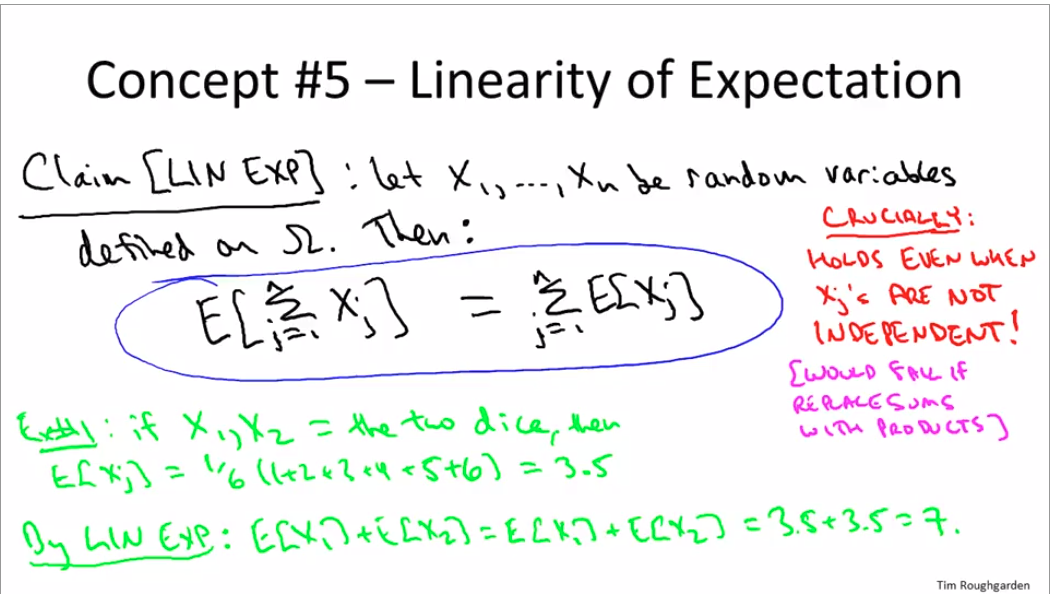 Concept #5 – Linearity of Expectation
Claim [LIN EXP] : let X₁, ..., Xₙ be random variables
defined on Ω. Then:
E[∑ⱼ₌₁ⁿ Xⱼ] = ∑ⱼ₌₁ⁿ E[Xⱼ]
CRUCIALLY:
HOLDS EVEN WHEN
Xⱼ's ARE NOT
INDEPENDENT!
[WOULD FAIL IF
REPLACE SUMS
WITH PRODUCTS]
Ex#1: if X₁, X₂ = the two dice, then
E[Xⱼ] = 1/6 (1+2+3+4+5+6) = 3.5
By LIN EXP: E[X₁]+E[X₂] = E[X₁] + E[X₂] = 3.5+3.5=7.
Tim Roughgarden